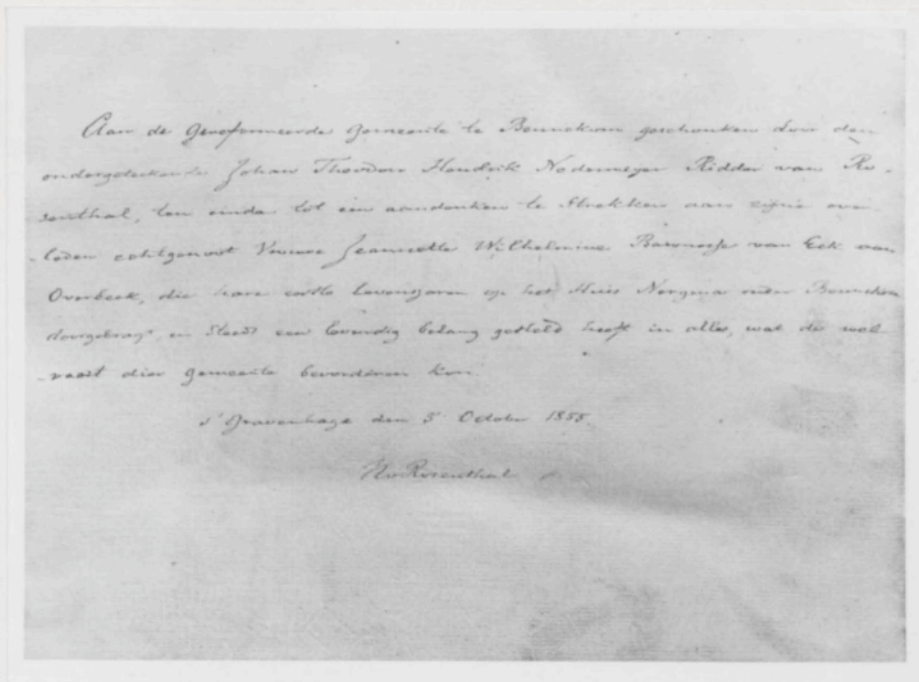 Aan de Gereformeerde Gemeente te Bennekom geschonken door den
ondergeteekende Johan Theodoor Hendrik Nedermeijer Ridder van Ro-
senthal, ten einde tot een aandenken te strekken aan zijne over-
-leden echtgenoot Vrouwe Jeannette Wilhelmine Baronesse van Eck van
Overbeek, die hare eerste levensjaren op het Huis Nergena onder Bennekom
doorgebragt, en steeds een levendig belang gesteld heeft in alles, wat de wel-
-vaart dier gemeente bevorderen kon.
s' Gravenhage den 5 October 1855.
Rosenthal